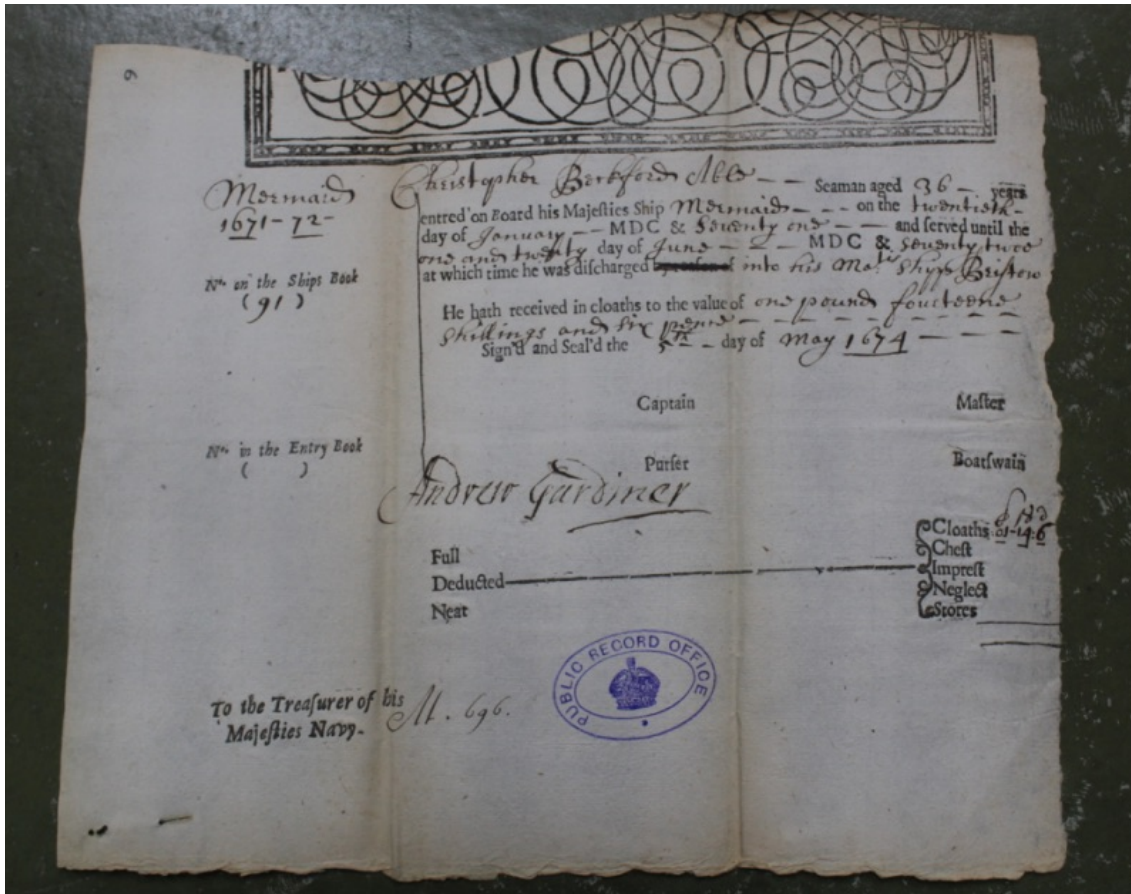 6
Mermaid
1671-72-
Christopher Berkford Able - - Seaman aged 36 - years
entred on Board his Majesties Ship Mermaid - - - on the twentieth -
day of January - - MDC & Seventy one - - and served until the
one and twenty day of June - - - MDC & Seventy twoe
at which time he was discharged into his Ma:tis Shipp Bristow
He hath received in cloaths to the value of one pound fourteene
Shillings and six pence - - - - - - -
Sign'd and Seal'd the 5th - - day of May 1674 - - - -
No. on the Ships Book
(91)
Captain Master
No. in the Entry Book
( )
Purser Boatswain
Andrew Gardiner
Full
Deducted
Neat
£ s d
Cloaths 01-14:6
Chest
Imprest
Neglect
Stores
PUBLIC RECORD OFFICE
To the Treasurer of his
Majesties Navy.
M. 696.